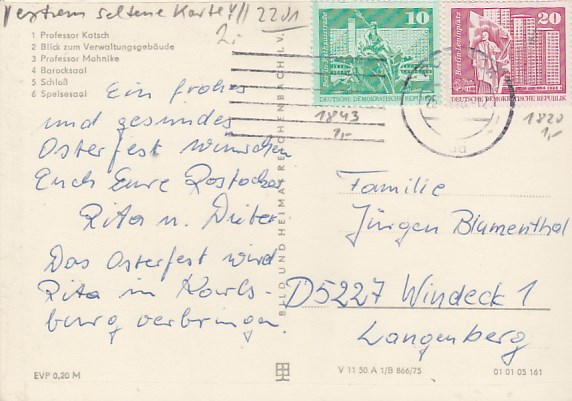 extrem seltene Karte!! 2201
2,-
1 Professor Katsch
2 Blick zum Verwaltungsgebäude
3 Professor Mohnike
4 Barocksaal
5 Schloß
6 Speisesaal
Ein frohes
und gesundes
Osterfest wünschen
Euch Eure Rostocker
Rita u. Dieter
Das Osterfest wird
Rita in Karls-
burg verbringen.
EVP 0,20 M
BILD UND HEIMAT REICHENBACH I. V.
10
DEUTSCHE DEMOKRATISCHE REPUBLIK
20
Berlin, Leninplatz
DEUTSCHE DEMOKRATISCHE REPUBLIK
1843
1,-
1820
1,-
Familie
Jürgen Blumenthal
D5227 Windeck 1
Langenberg
V 11 50 A 1/B 866/75
01 01 05 161